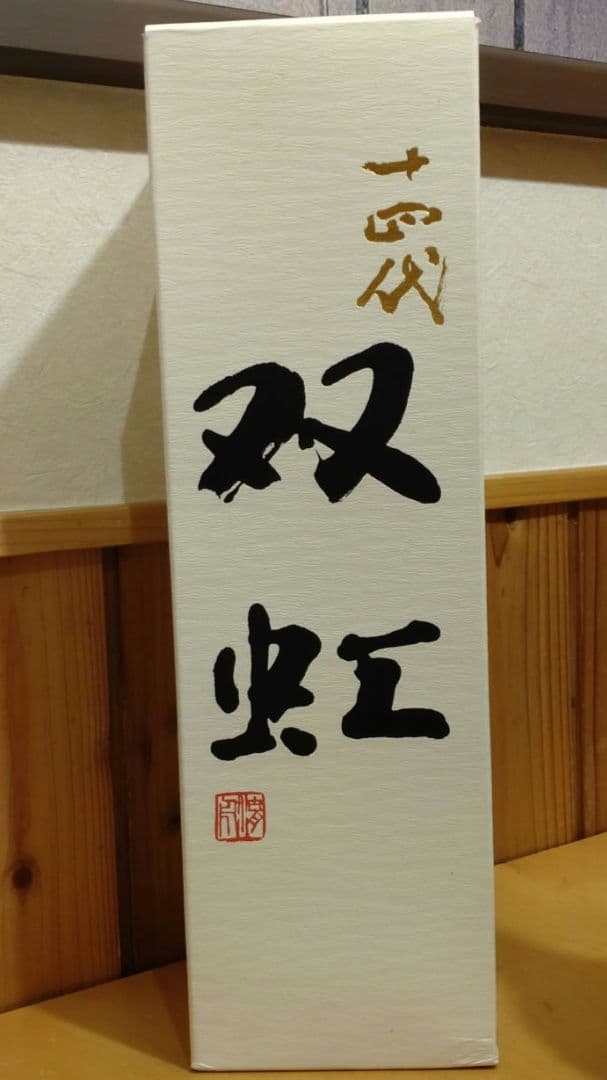 十四代
双虹